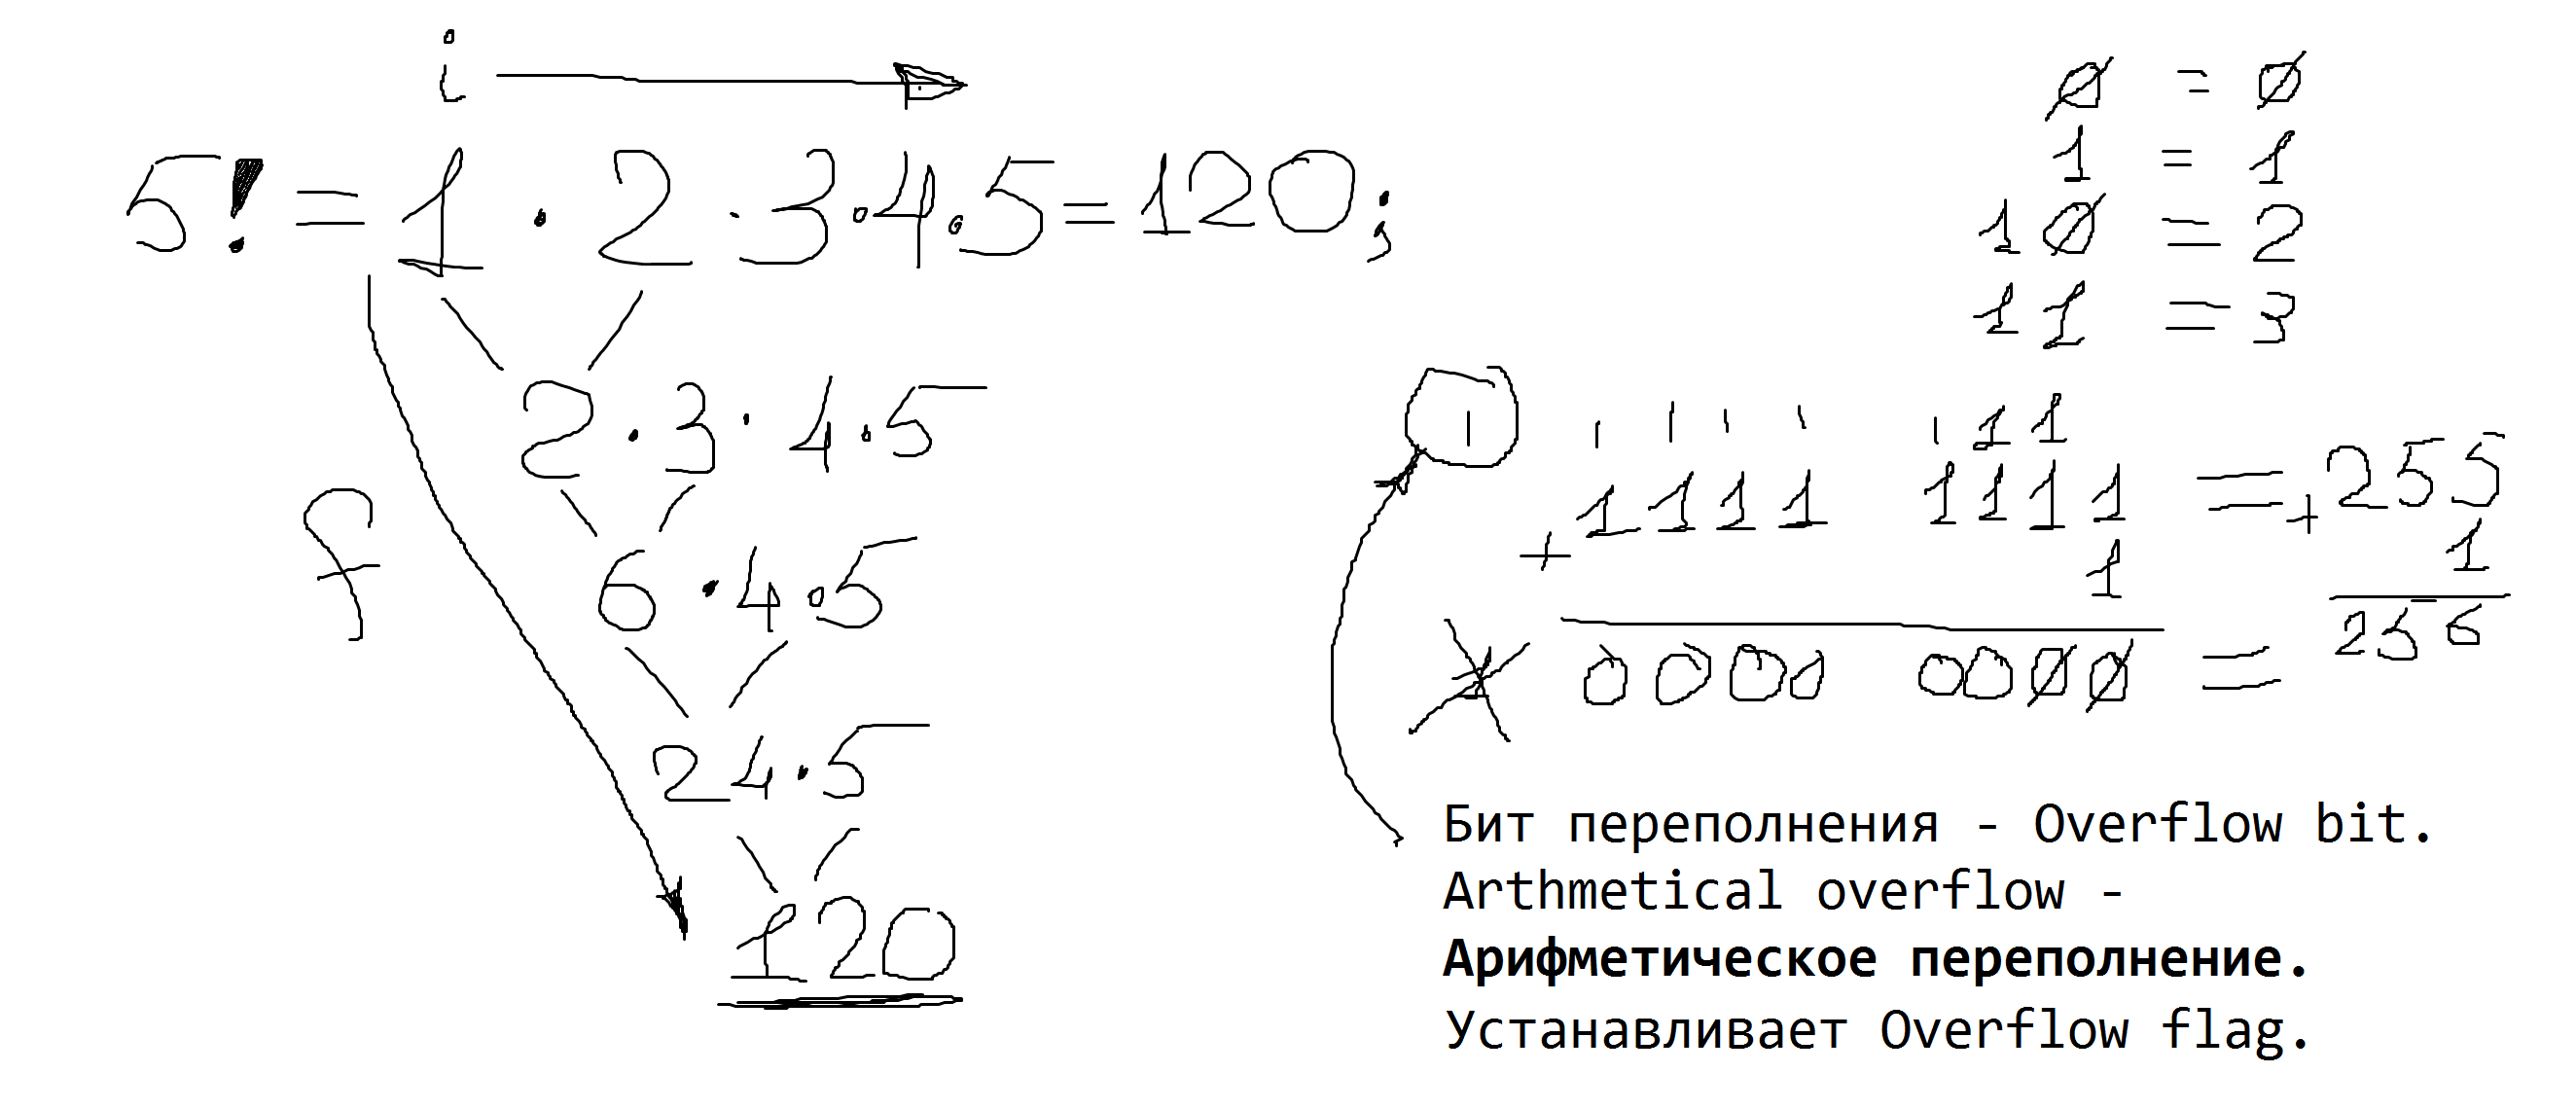 i
5! = 1 · 2 · 3 · 4 · 5 = 120;
2 · 3 · 4 · 5
f
6 · 4 · 5
24 · 5
120
0 = 0
1 = 1
10 = 2
11 = 3
1 1 1 1 1 1 1 1
1111 1111 = 255
+ 1 + 1
1 0000 0000 = 256
Бит переполнения - Overflow bit.
Arthmetical overflow -
Арифметическое переполнение.
Устанавливает Overflow flag.